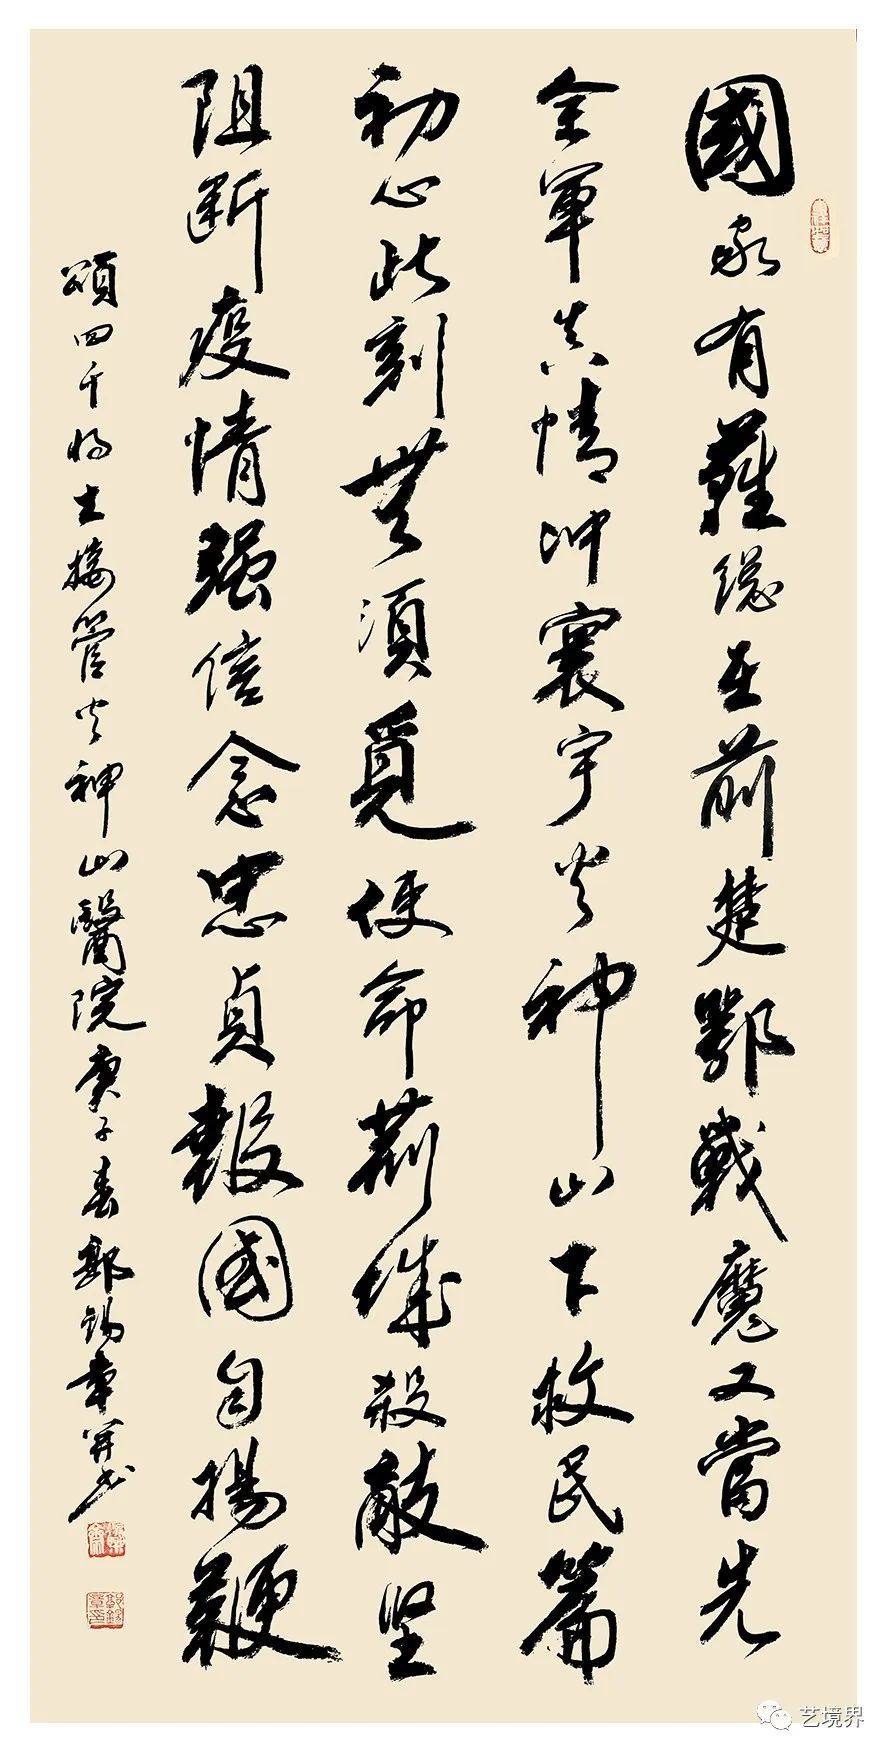 國家有難總在前楚鄂戰魔又當先
全軍真情冲寰宇火神山下救民篇
初心此刻無須覓使命荊城殺敵坚
阻断疫情强信念忠貞報國自揚鞭
頌四千將士接管火神山醫院庚子春錫章并书
艺境界